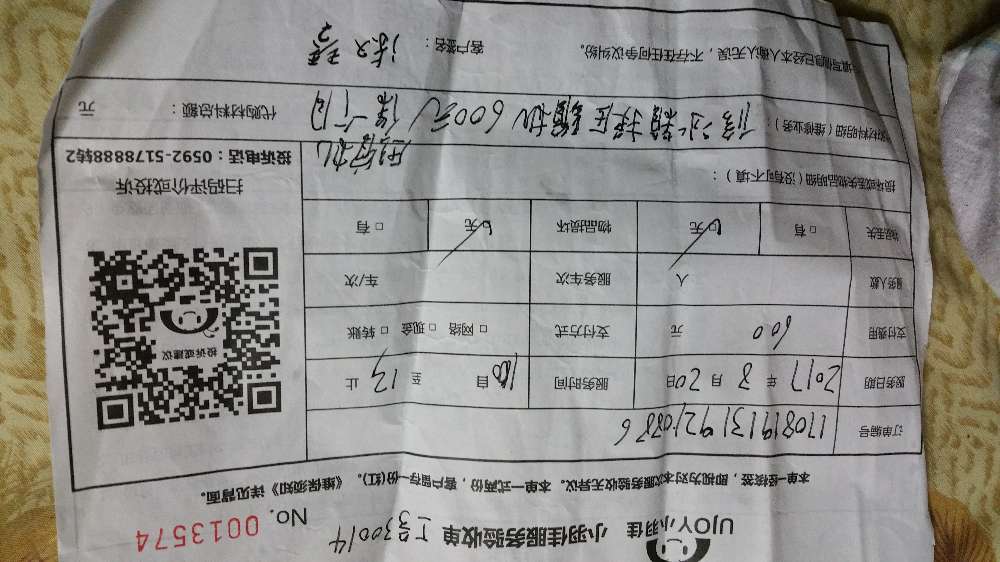 UJOY小羽佳 小羽佳服务验收单 工号30014
No. 0013574
本单一经接签，即视为对本次服务验收无异议。本单一式两份，客户留存一份(红)。《维保须知》详见背面。
订单编号 17081913192108
服务日期 2017 年 8 月 20 日 服务时间 自 至 13 止
支付费用 600 元 支付方式 □ 网络 □ 现金 □ 转账
服务人数 人 服务车次 车/次
物品丢失 □ 有 □ 无 物品损坏 □ 无 □ 有
投诉或建议
扫码评价或投诉
投诉电话：0592-5178888转2
损坏或丢失物品明细（没有可不填）：
材料明细（维修业务）：修冰箱 600元 保 个月
压缩机
代购材料总额： 元
填写信息已经本人确认无误，不存在任何争议纠纷。
客户签名：